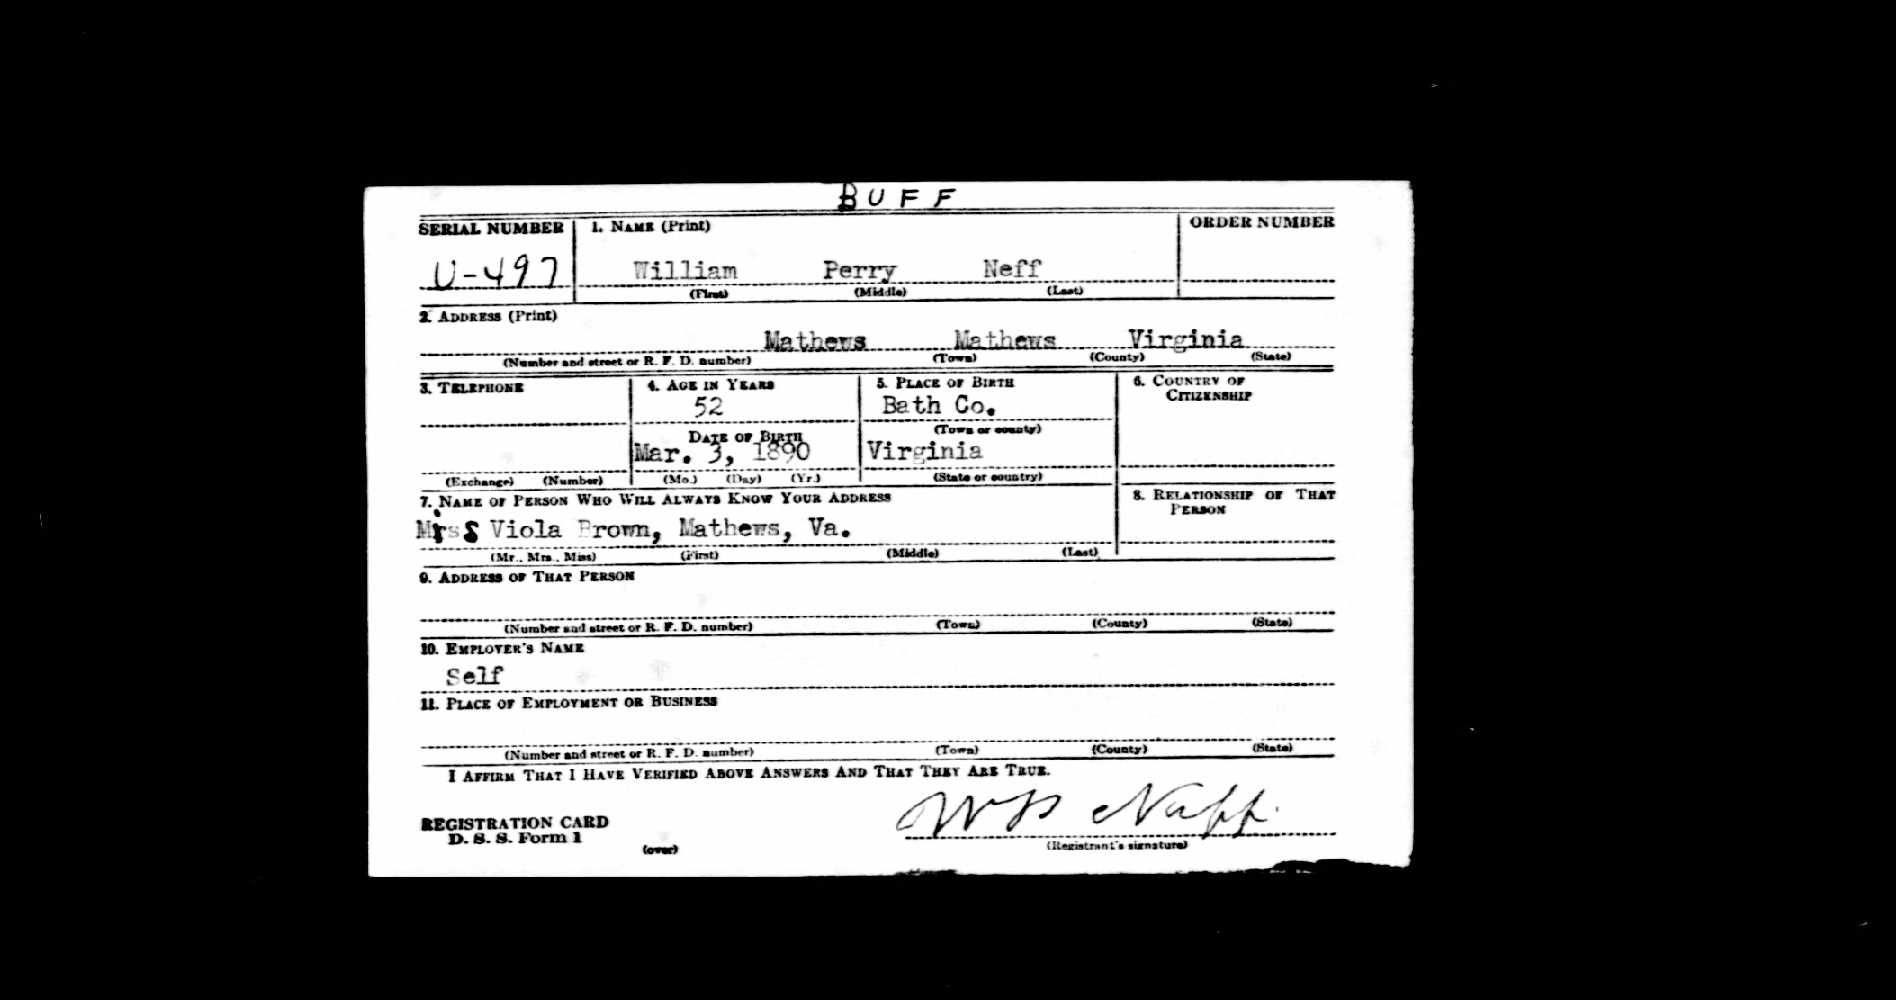 BUFF
SERIAL NUMBER 1. NAME (Print) ORDER NUMBER
U-497 William Perry Neff
(First) (Middle) (Last)
2. ADDRESS (Print)
Mathews Mathews Virginia
(Number and street or R. F. D. number) (Town) (County) (State)
3. TELEPHONE 4. AGE IN YEARS 5. PLACE OF BIRTH 6. COUNTRY OF
CITIZENSHIP
52 Bath Co.
(Town or county)
DATE OF BIRTH
Mar. 3, 1890 Virginia
(Exchange) (Number) (Mo.) (Day) (Yr.) (State or country)
7. NAME OF PERSON WHO WILL ALWAYS KNOW YOUR ADDRESS 8. RELATIONSHIP OF THAT
PERSON
Miss Viola Brown, Mathews, Va.
(Mr., Mrs., Miss) (First) (Middle) (Last)
9. ADDRESS OF THAT PERSON
(Number and street or R. F. D. number) (Town) (County) (State)
10. EMPLOYER'S NAME
Self
11. PLACE OF EMPLOYMENT OR BUSINESS
(Number and street or R. F. D. number) (Town) (County) (State)
I AFFIRM THAT I HAVE VERIFIED ABOVE ANSWERS AND THAT THEY ARE TRUE.
W P Naff.
REGISTRATION CARD
D. S. S. Form 1
(over) (Registrant's signature)